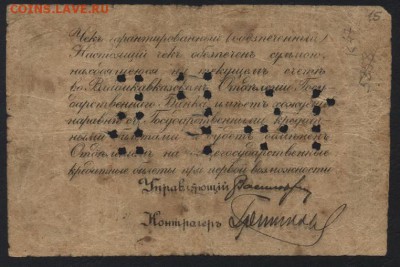 COINS.LAVE.RU
15
Чекъ гарантированный (обезпеченный).
Настоящій чекъ обезпеченъ суммою,
находящеюся на текущемъ счету
во Владикавказскомъ Отдѣленіи Госу-
дарственнаго Банка, имѣетъ хожденіе
наравнѣ съ Государственными кредит-
ными билетами и будетъ обмѣненъ
Отдѣленіемъ на Государственные
кредитные билеты при первой возможности
Управляющій
Контролеръ